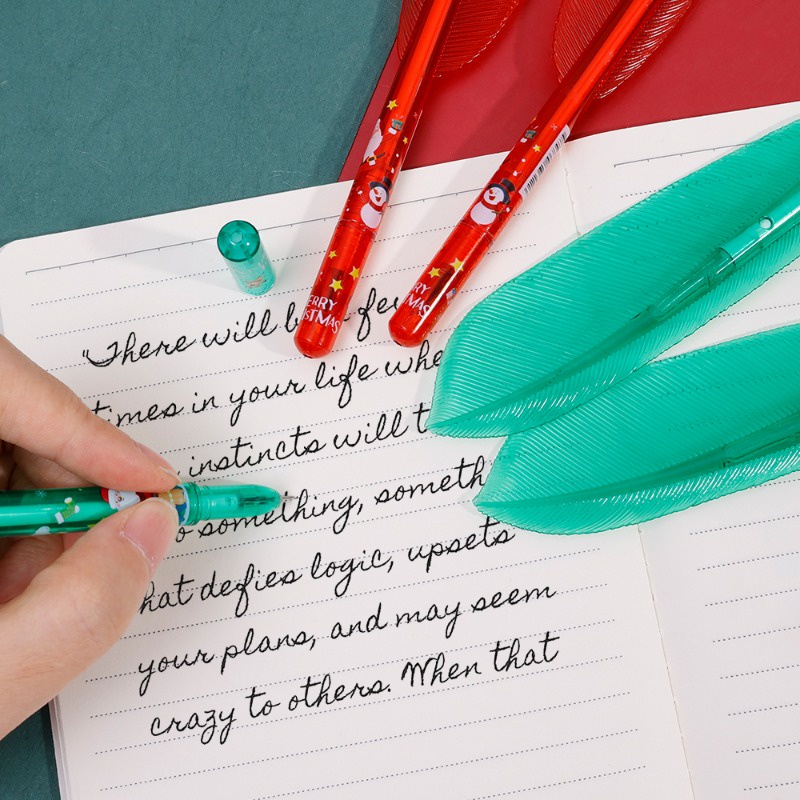 "There will be few
times in your life whe
instincts will t
o something, someth
hat defies logic, upsets
your plans, and may seem
crazy to others. When that
ERRY
STMAS
RRY
MAS